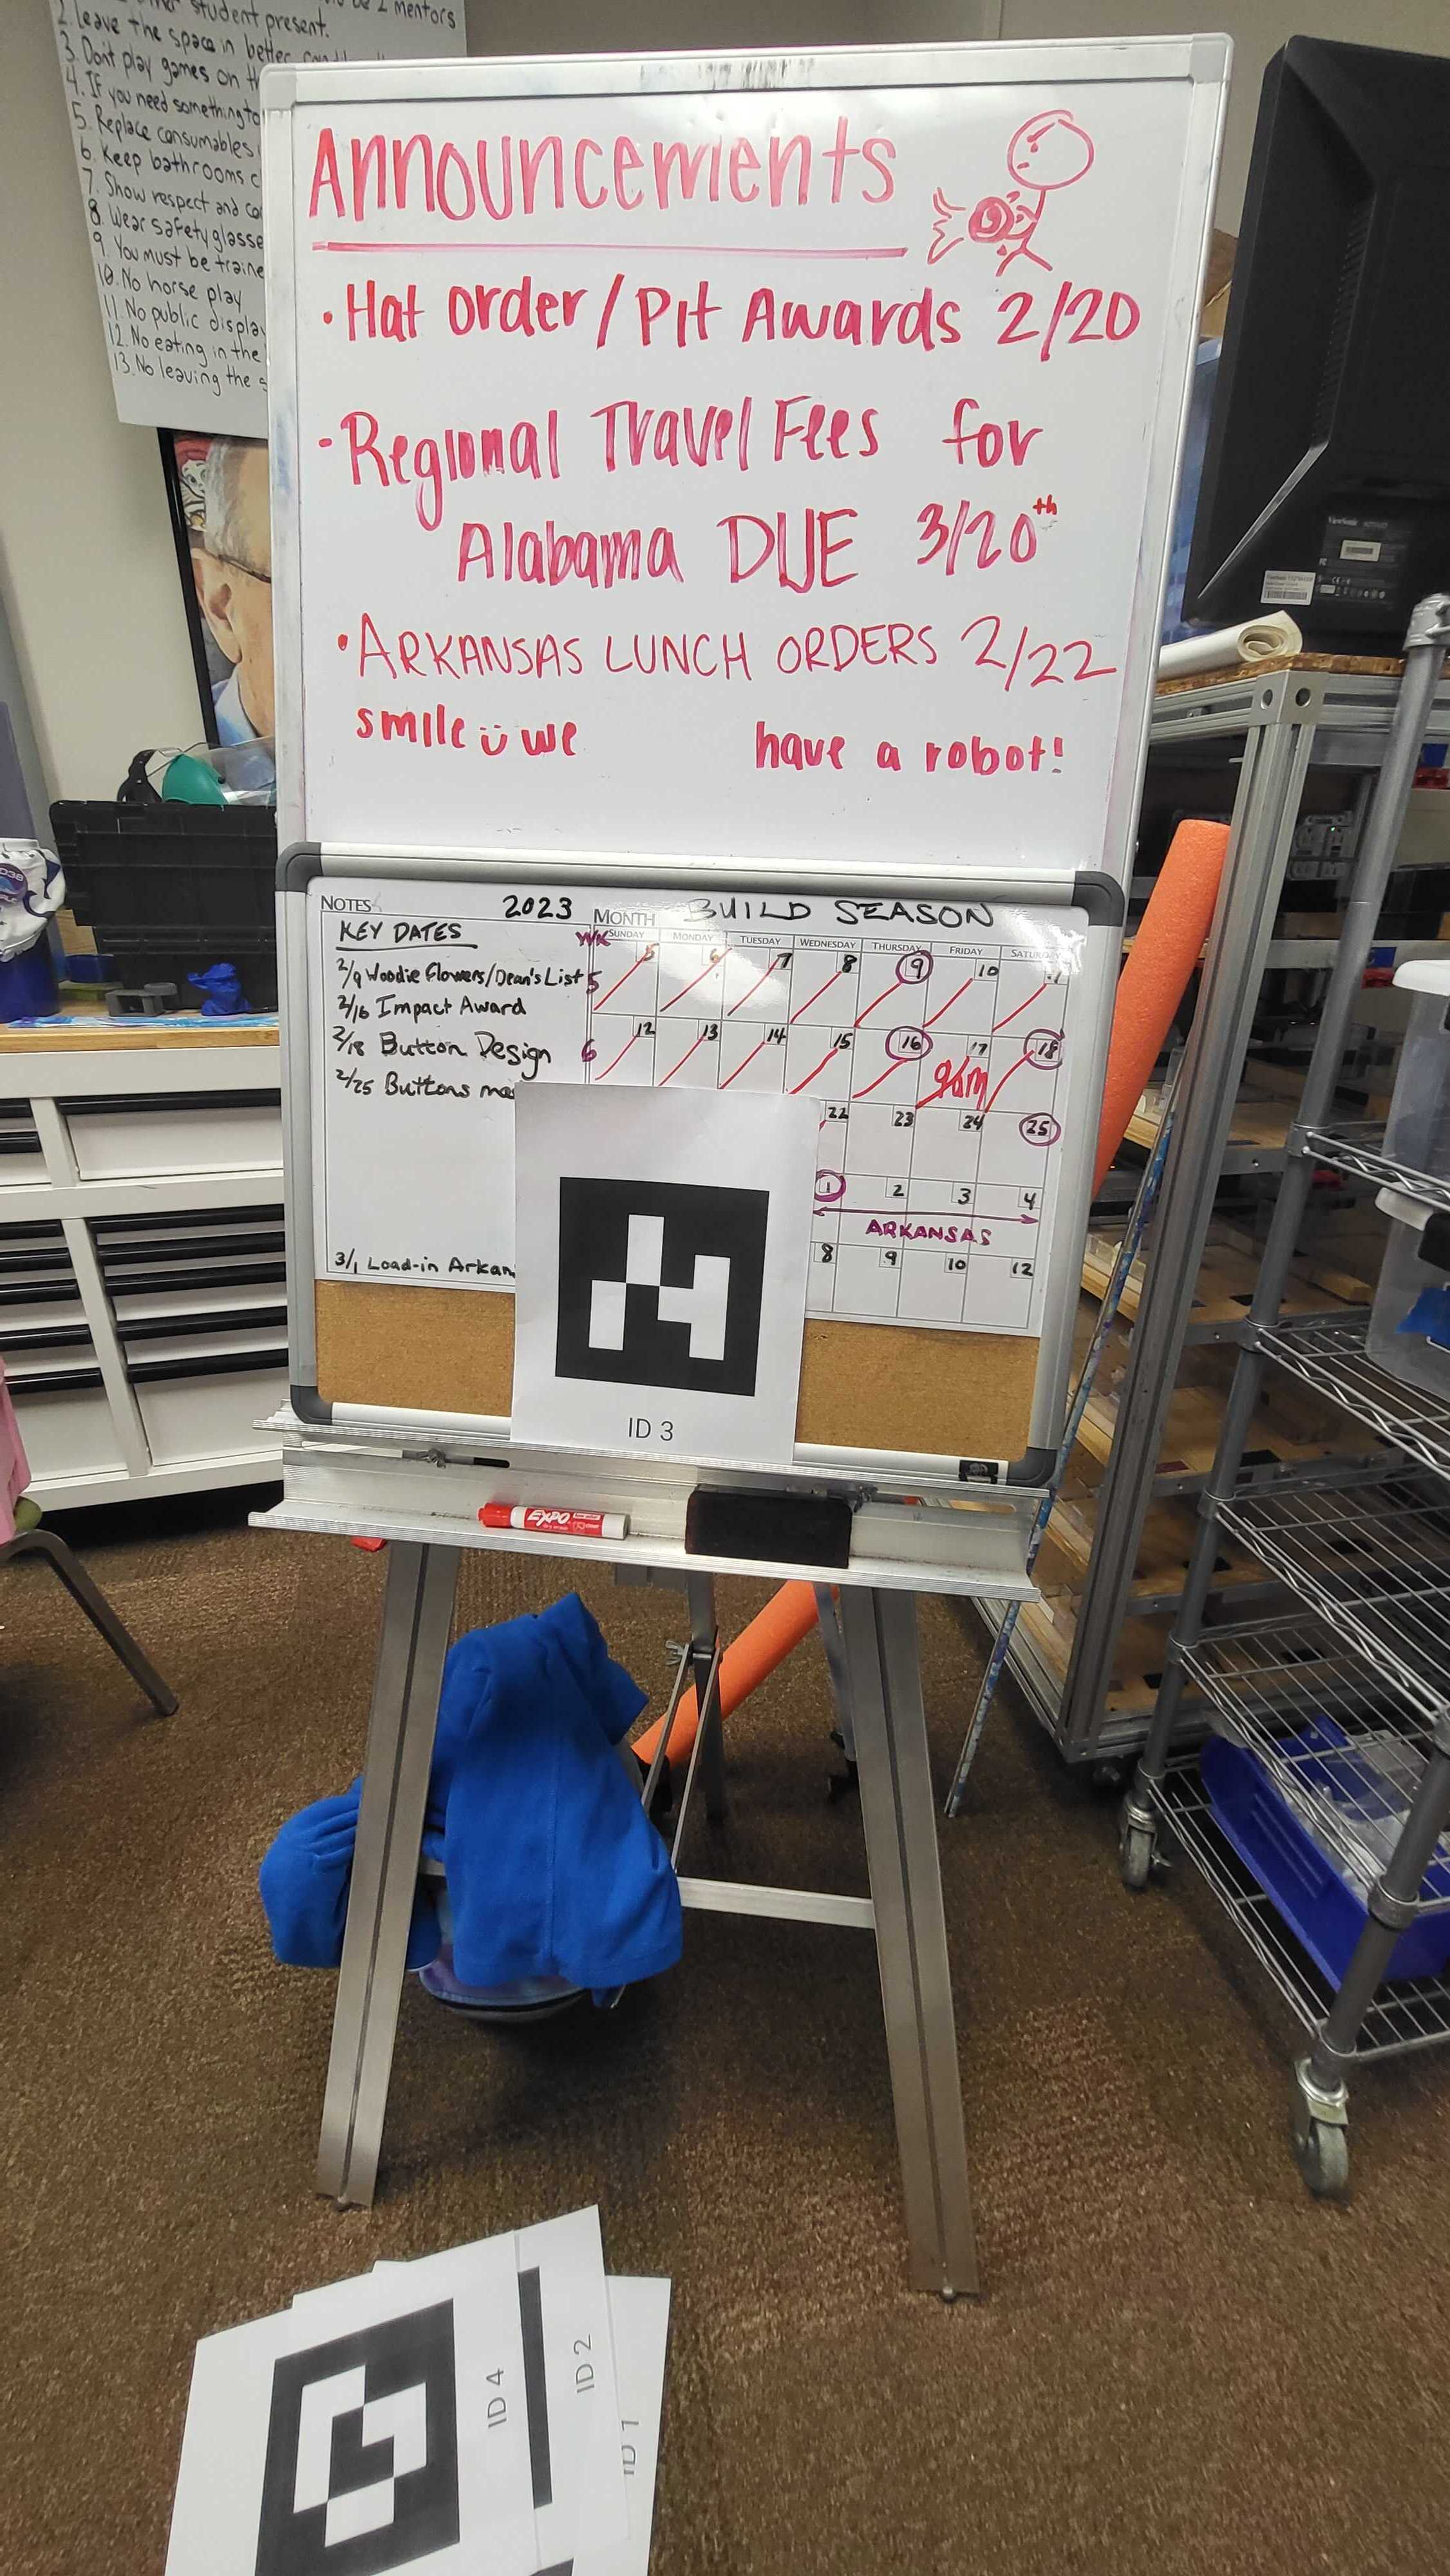 be 2 mentors
student present.
2. leave the space in better
3. Don't play games on th
4. If you need something to
5. Replace consumables
6. Keep bathrooms c
7. Show respect and co
8. Wear safety glasse
9. You must be traine
10. No horse play
11. No public display
12. No eating in the
13. No leaving the s
Announcements
• Hat order/Pit Awards 2/20
• Regional Travel Fees for
Alabama DUE 3/20th
• ARKANSAS LUNCH ORDERS 2/22
smile we have a robot!
ViewSonic
NOTES 2023 MONTH BUILD SEASON
KEY DATES
2/9 Woodie Flowers/Dean's List
2/16 Impact Award
2/18 Button Design
2/25 Buttons ma
3/1 Load-in Arkan
WK SUNDAY MONDAY TUESDAY WEDNESDAY THURSDAY FRIDAY SATURDAY
5 5 6 7 8 9 10 11
6 12 13 14 15 16 17 18
9am
22 23 24 25
1 2 3 4
ARKANSAS
8 9 10 12
ID 3
EXPO
ID 4
ID 2
ID 1